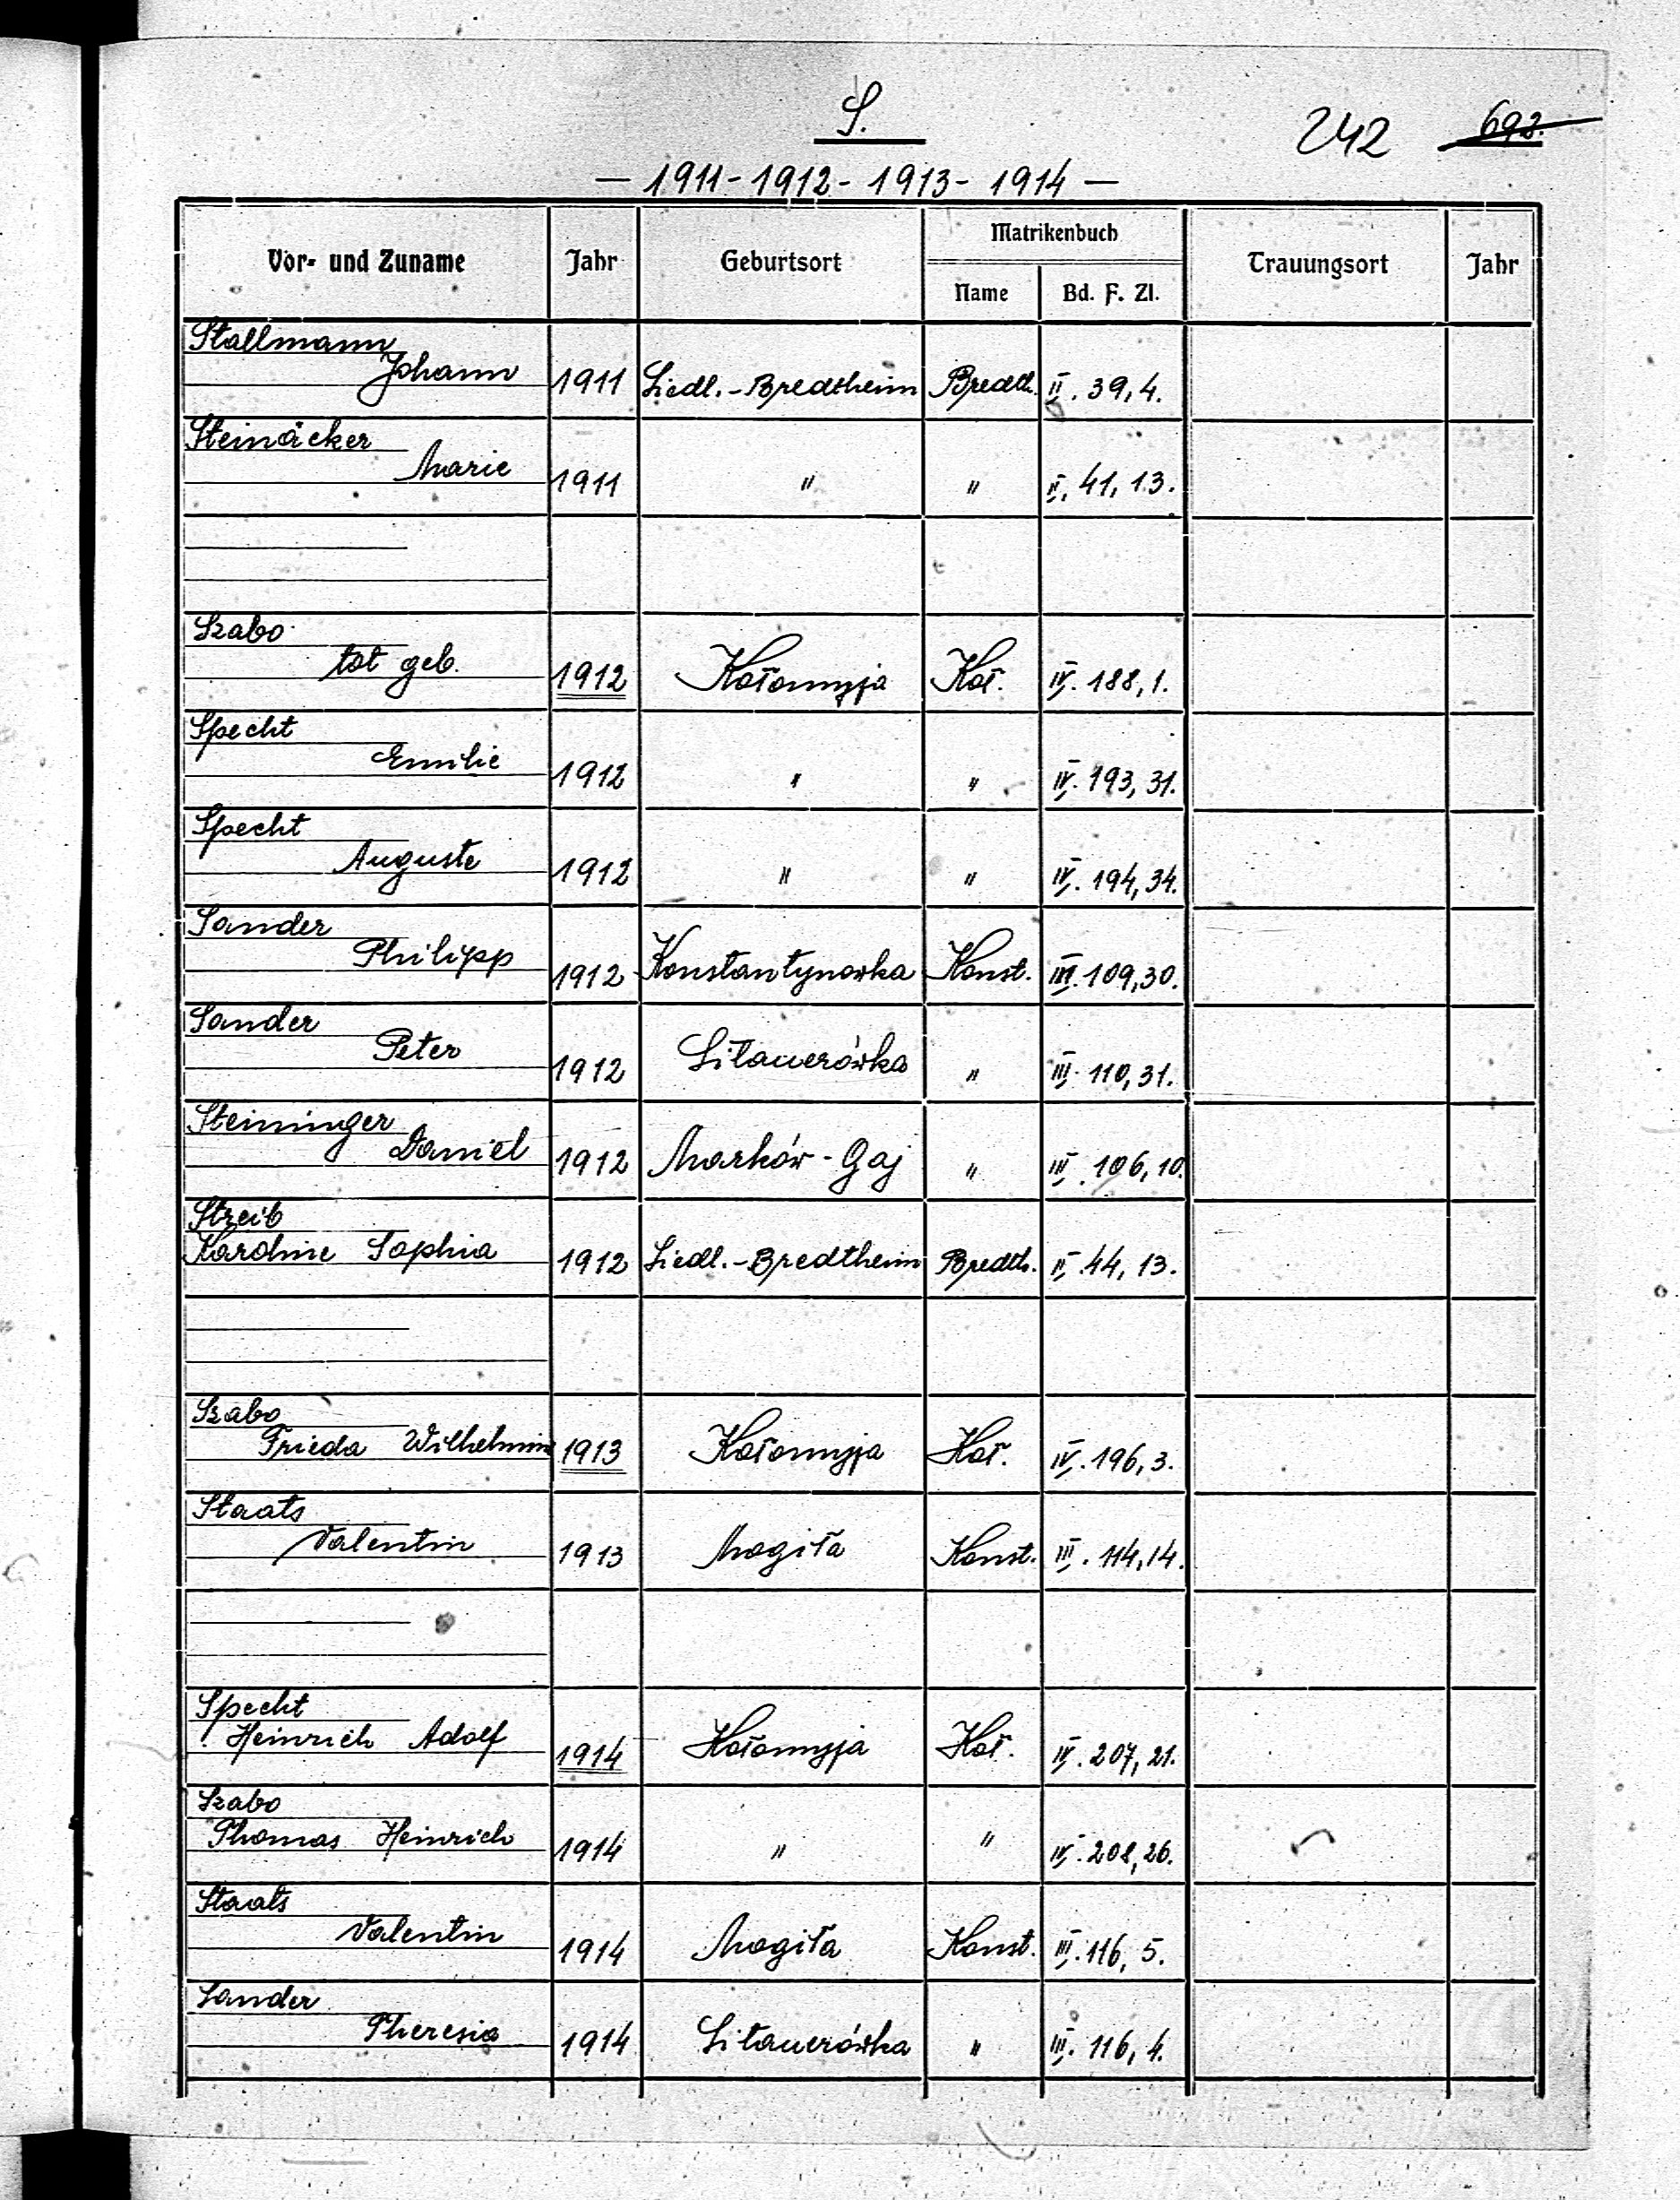 S.
242 692.
— 1911 - 1912 - 1913 - 1914 —
Vor- und Zuname Jahr Geburtsort Matrikenbuch Trauungsort Jahr
Name Bd. F. Zl.
Stallmann
Johann 1911 Siedl.-Bredtheim Bredth. II. 39, 4.
Steinäcker
Marie 1911 " " II. 41, 13.
Szabo
tot geb. 1912 Kołomyja Koł. IV. 188, 1.
Specht
Emilie 1912 " " IV. 193, 31.
Specht
Auguste 1912 " " IV. 194, 34.
Sander
Philipp 1912 Konstantynowka Konst. III. 109, 30.
Sander
Peter 1912 Sitauerówka " III. 110, 31.
Steininger
Daniel 1912 Marków - Gaj " III. 106, 10.
Streib
Karoline Sophia 1912 Siedl.-Bredtheim Bredth. II. 44, 13.
Szabo
Frieda Wilhelmine 1913 Kołomyja Koł. IV. 196, 3.
Staats
Valentin 1913 Mogiła Konst. III. 114, 14.
Specht
Heinrich Adolf 1914 Kołomyja Koł. IV. 207, 21.
Szabo
Thomas Heinrich 1914 " " IV. 208, 26.
Staats
Valentin 1914 Mogiła Konst. III. 116, 5.
Sander
Theresia 1914 Sitauerówka " III. 116, 4.